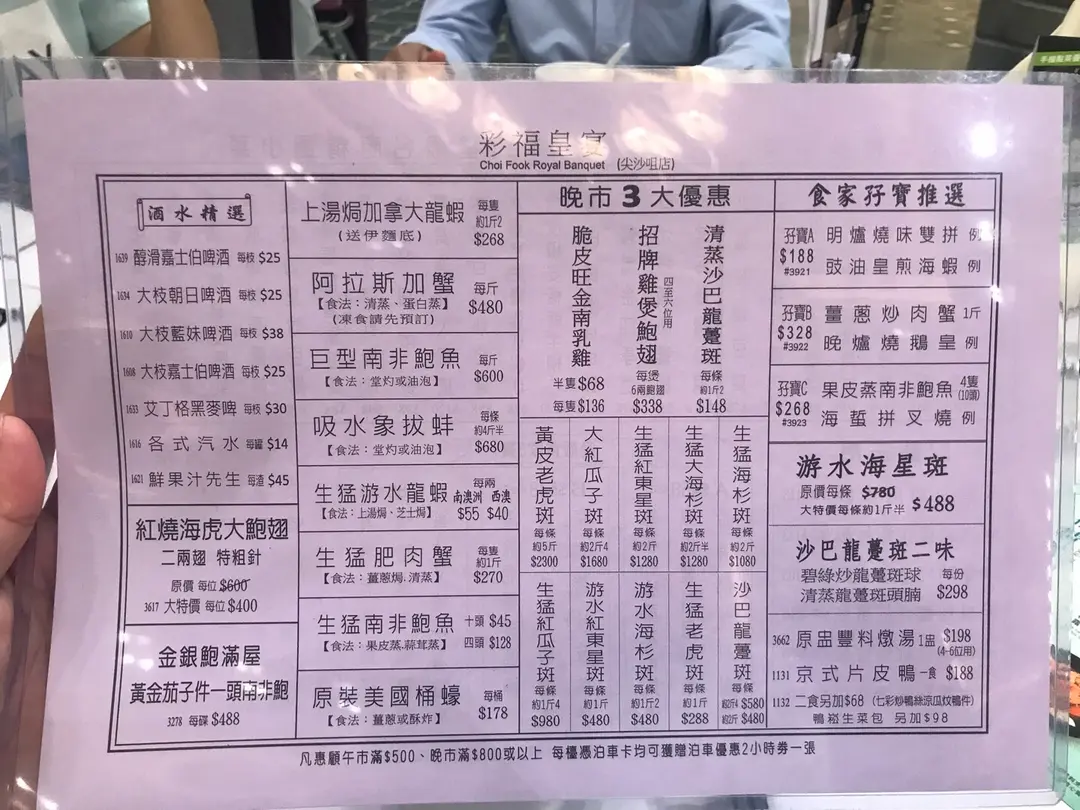 彩福皇宴
Choi Fook Royal Banquet (尖沙咀店)
酒水精選
1639 醇滑嘉士伯啤酒 每枝 $25
1634 大枝朝日啤酒 每枝 $25
1610 大枝藍妹啤酒 每枝 $38
1608 大枝嘉士伯啤酒 每枝 $25
1633 艾丁格黑麥啤 每枝 $30
1616 各式汽水 每罐 $14
1621 鮮果汁先生 每渣 $45
紅燒海虎大鮑翅
二兩翅 特粗針
原價 每位 $600
3617 大特價 每位 $400
金銀鮑滿屋
黃金茄子件一頭南非鮑
3278 每碟 $488
上湯焗加拿大龍蝦 每隻 約1斤2
(送伊麵底) $268
阿拉斯加蟹 每斤
【食法：清蒸、蛋白蒸】 $480
(凍食請先預訂)
巨型南非鮑魚 每斤
【食法：堂灼或油泡】 $600
吸水象拔蚌 每條 約4斤半
【食法：堂灼或油泡】 $680
生猛游水龍蝦 每兩 南澳洲 西澳
【食法：上湯焗、芝士焗】 $55 $40
生猛肥肉蟹 每隻 約1斤
【食法：薑蔥焗.清蒸】 $270
生猛南非鮑魚 十頭 $45
【食法：果皮蒸.蒜茸蒸】 四頭 $128
原裝美國桶蠔 每桶
【食法：薑蔥或酥炸】 $178
晚市3大優惠
脆皮旺金南乳雞
半隻 $68
每隻 $136
招牌雞煲鮑翅
四至六位用
每煲
6兩鮑翅
$338
清蒸沙巴龍躉斑
每條
約1斤2
$148
黃皮老虎斑
每條
約5斤
$2300
大紅瓜子斑
每條
約2斤4
$1680
生猛紅東星斑
每條
約2斤
$1280
生猛大海杉斑
每條
約2斤半
$1280
生猛海杉斑
每條
約2斤
$1080
生猛紅瓜子斑
每條
約1斤4
$980
游水紅東星斑
每條
約1斤
$480
游水海杉斑
每條
約1斤2
$480
生猛老虎斑
每條
約1斤
$288
沙巴龍躉斑
每條
約2斤4 $580
約2斤 $480
食家孖寶推選
孖寶A 明爐燒味雙拼 例
$188
#3921 豉油皇煎海蝦 例
孖寶B 薑蔥炒肉蟹 1斤
$328
#3922 晚爐燒鵝皇 例
孖寶C 果皮蒸南非鮑魚 4隻 (10頭)
$268
#3923 海蜇拼叉燒 例
游水海星斑
原價每條 $780
大特價每條約1斤半 $488
沙巴龍躉斑二味
碧綠炒龍躉斑球 每份
清蒸龍躉斑頭腩 $298
3662 原盅豐料燉湯 1盅 $198
(4-6位用)
1131 京式片皮鴨 一食 $188
1132 二食另加$68 (七彩炒鴨絲涼瓜炆鴨件)
鴨崧生菜包 另加$98
凡惠顧午市滿$500、晚市滿$800或以上 每檯憑泊車卡均可獲贈泊車優惠2小時券一張